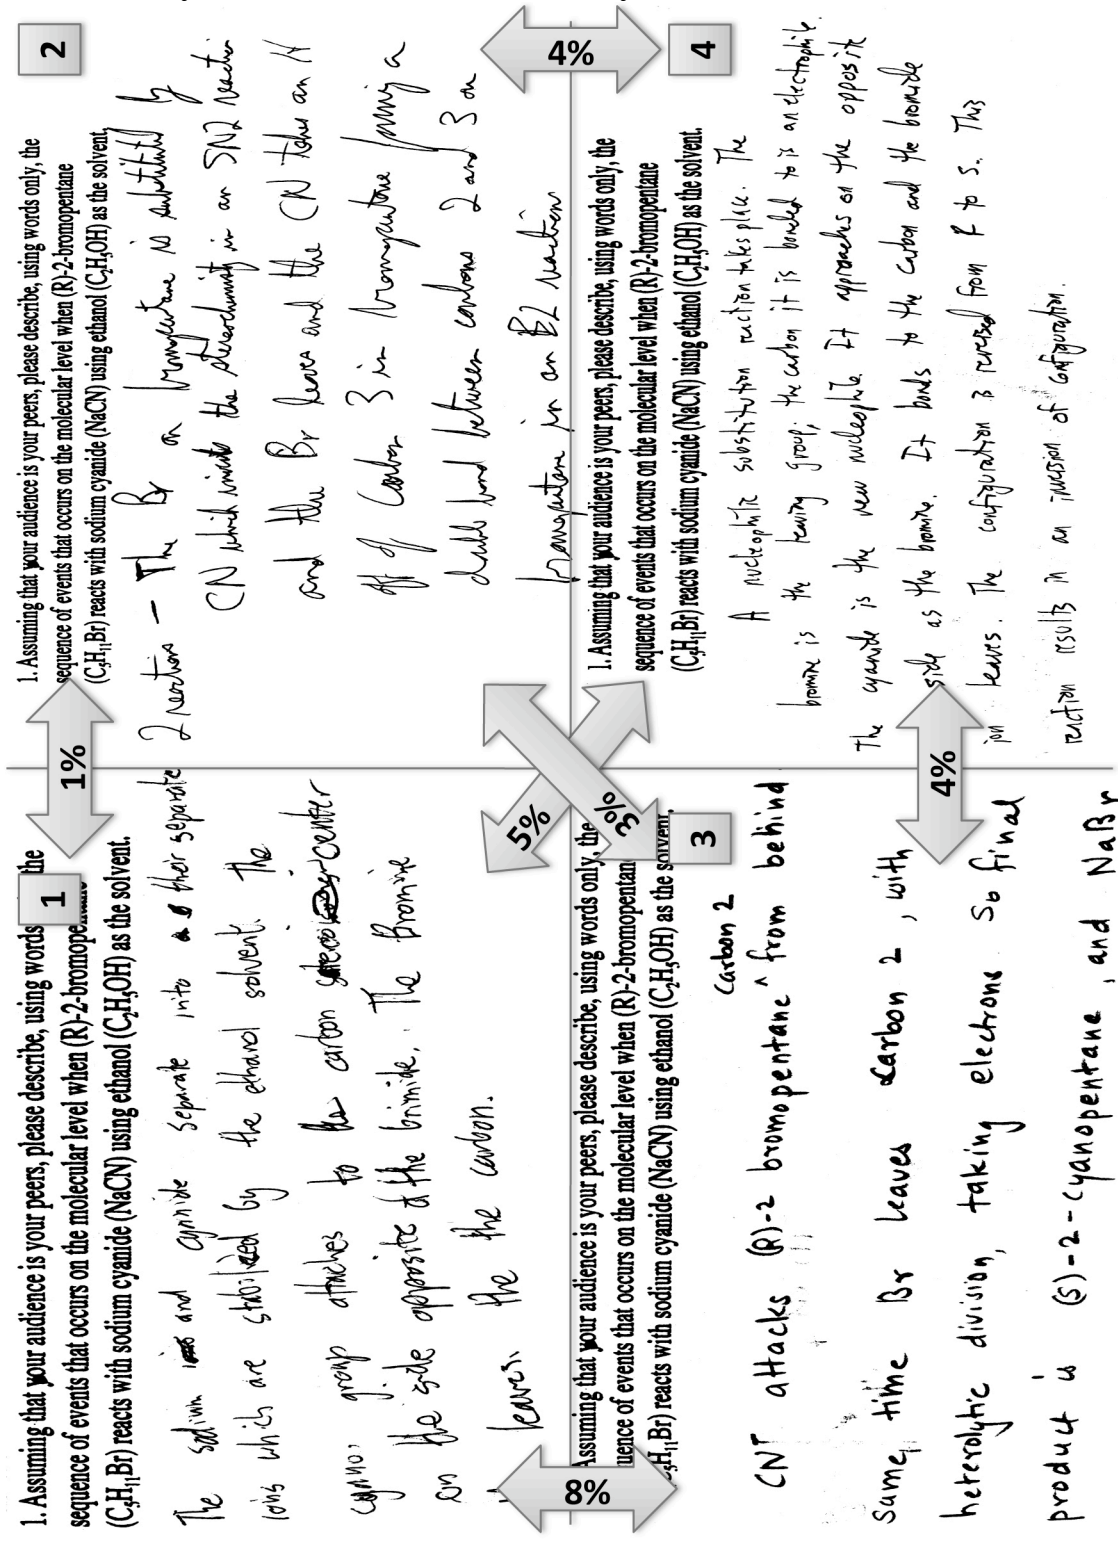 1
1. Assuming that your audience is your peers, please describe, using words the
sequence of events that occurs on the molecular level when (R)-2-bromope
(C₅H₁₁Br) reacts with sodium cyanide (NaCN) using ethanol (C₂H₅OH) as the solvent.
The sodium and cyanide separate into their separate
ions which are stabilized by the ethanol solvent. The
cyano group attaches to the carbon center
on the side opposite of the brimide. The Bromine
leaves the carbon.
1%
2
1. Assuming that your audience is your peers, please describe, using words only, the
sequence of events that occurs on the molecular level when (R)-2-bromopentane
(C₅H₁₁Br) reacts with sodium cyanide (NaCN) using ethanol (C₂H₅OH) as the solvent.
2 reactions - The Br on bromopentane is substituted by
CN which inverts the stereochemistry in an SN2 reaction
and the Br leaves and the CN takes an H
off of Carbon 3 in bromopentane forming a
double bond between carbons 2 and 3 on
bromopentane in an E2 reaction
8%
5%
3%
4%
3
Assuming that your audience is your peers, please describe, using words only, the
uence of events that occurs on the molecular level when (R)-2-bromopentan
₅H₁₁Br) reacts with sodium cyanide (NaCN) using ethanol (C₂H₅OH) as the solvent.
carbon 2
CN attacks (R)-2 bromopentane ^ from behind
same time Br leaves carbon 2, with
heterolytic division, taking electrons. So final
product is (S)-2-cyanopentane, and NaBr
4%
4
1. Assuming that your audience is your peers, please describe, using words only, the
sequence of events that occurs on the molecular level when (R)-2-bromopentane
(C₅H₁₁Br) reacts with sodium cyanide (NaCN) using ethanol (C₂H₅OH) as the solvent.
A nucleophilic substitution reaction takes place. The
bromine is the leaving group; the carbon it is bonded to is an electrophile.
The cyanide is the new nucleophile. It approaches on the opposite
side as the bromine. It bonds to the carbon and the bromide
ion leaves. The configuration is reversed from R to S. This
reaction results in an inversion of configuration.